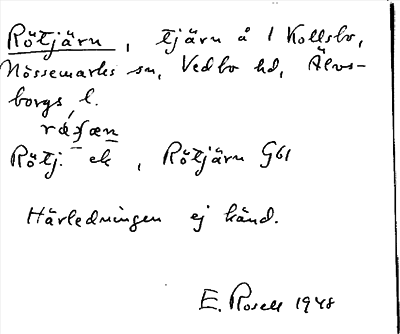 Rötjärn, tjärn å 1 Kollsbo,
Nössemarks sn, Vedbo hd, Älvs-
borgs l.
Rötj. ek, Rötjärn G61
Härledningen ej känd.
E. Rosell 1948